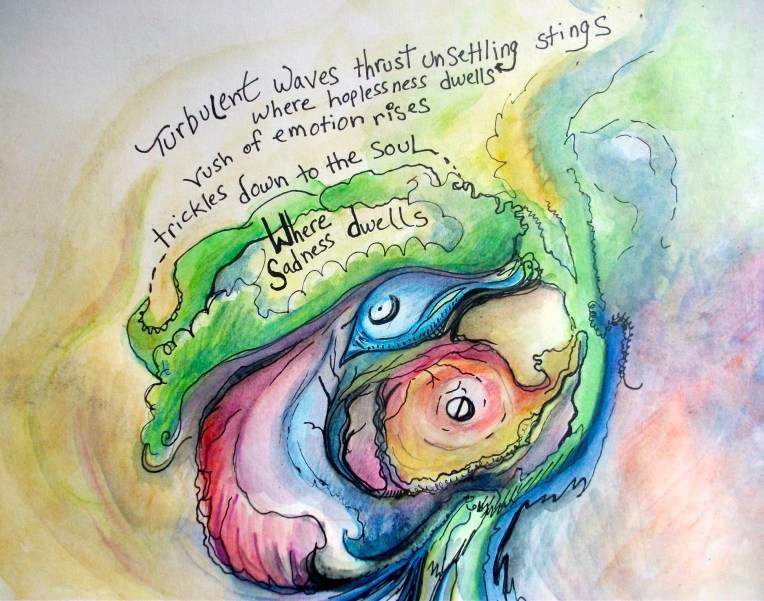 Turbulent waves thrust unsettling stings
where hoplessness dwells
rush of emotion rises
trickles down to the soul
Where
Sadness dwells